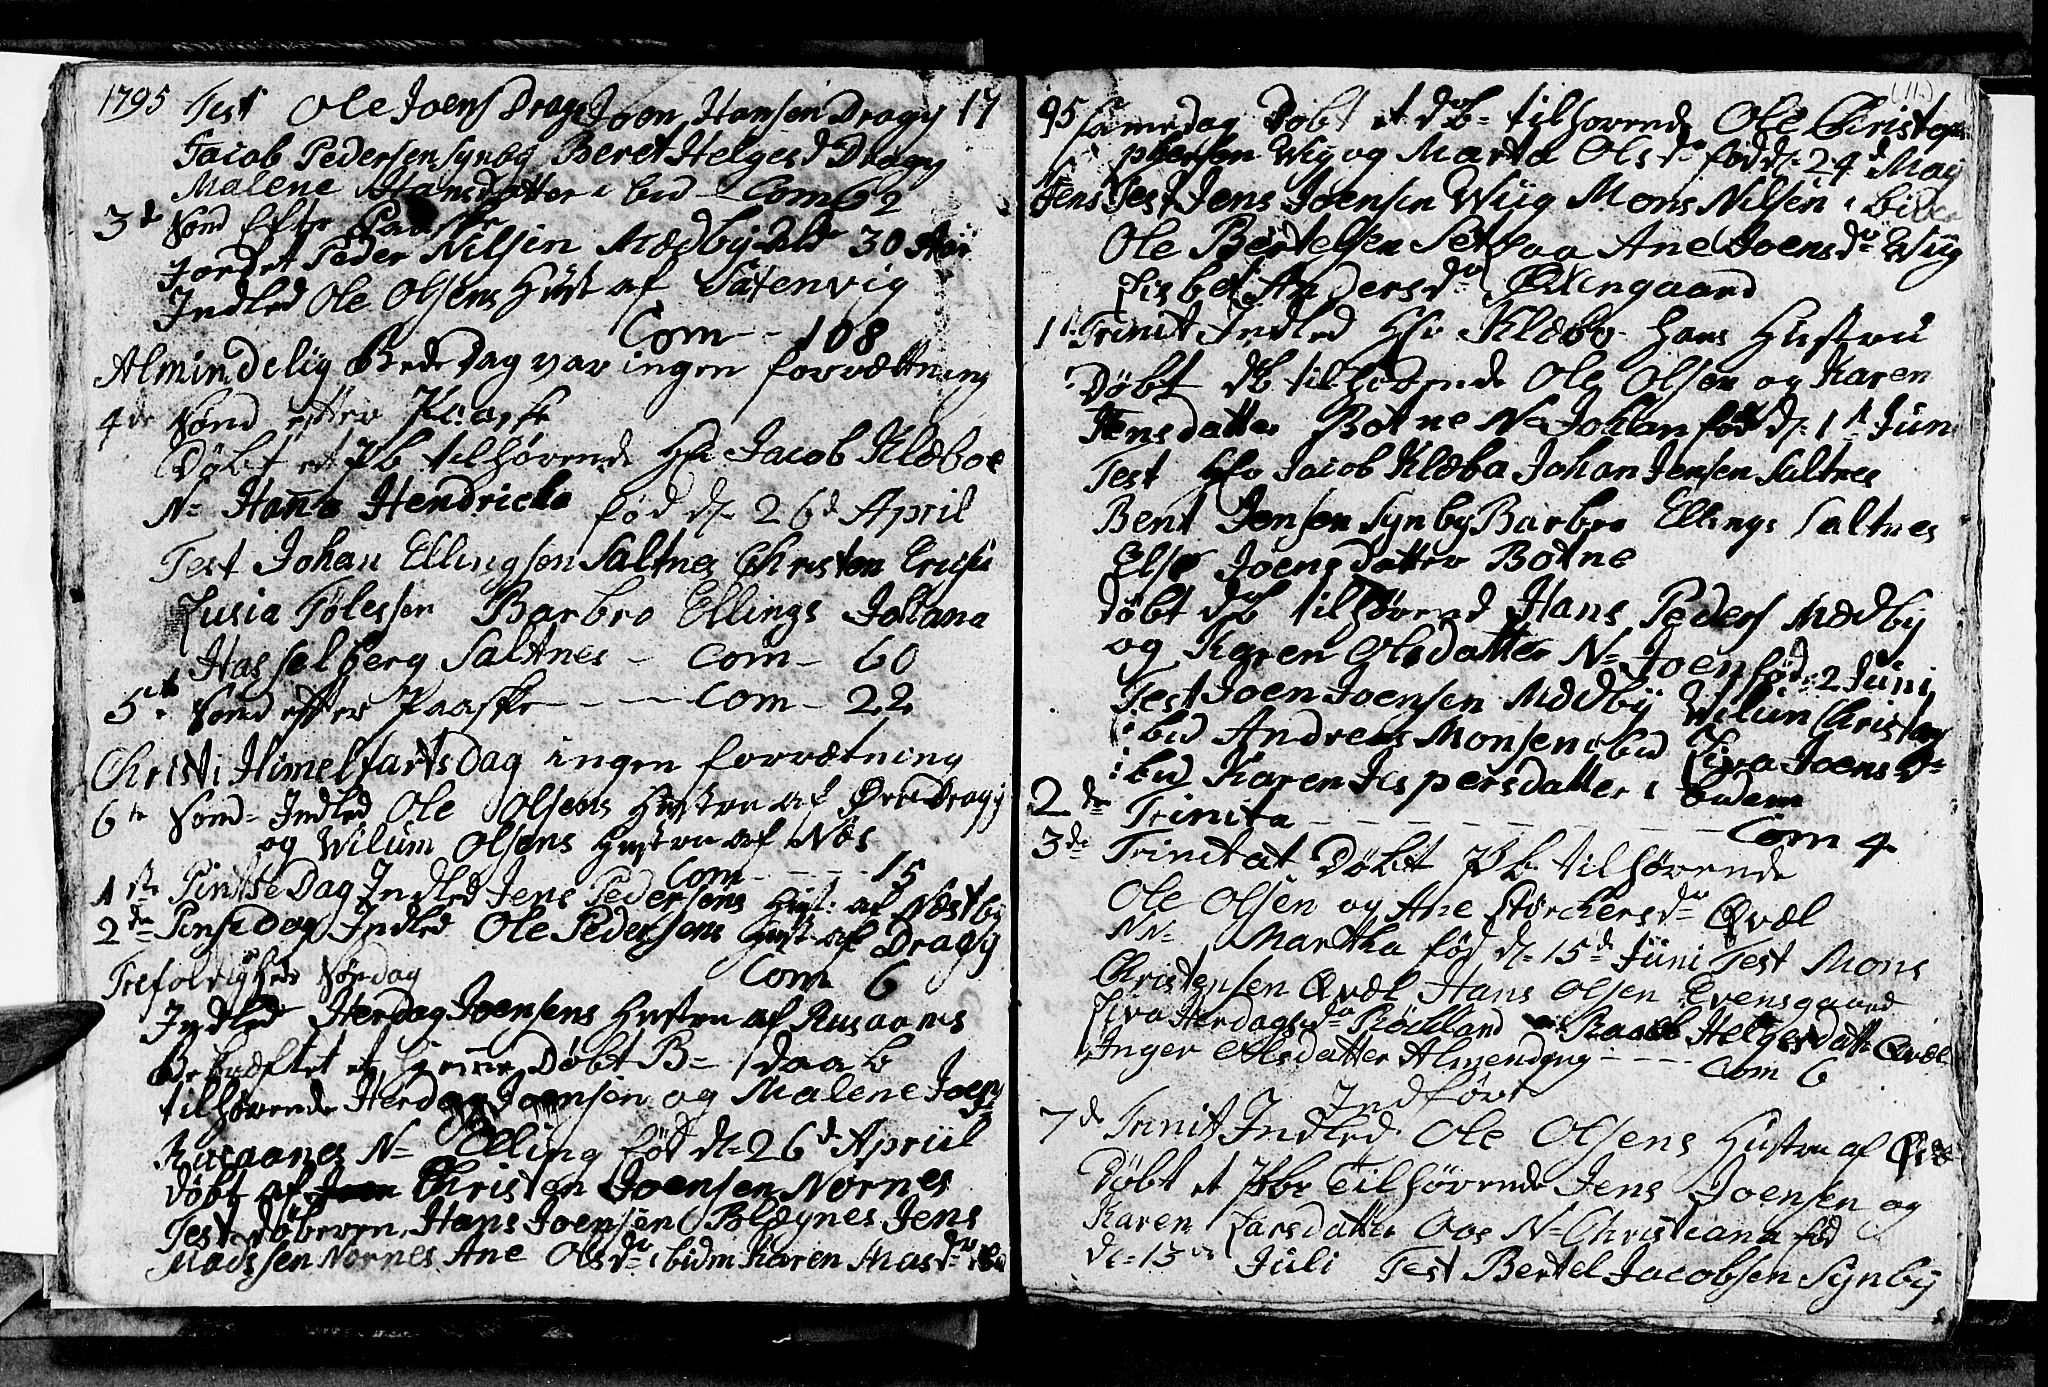 1795 Test Ole Joens Dragy Joen Hansen Dragy 17
Jacob Pedersen Synby Beret Helgesd Dragy
Malene Hansdatter ibid Com 62
3de Sond Efter Paaske
Jordet Peder Nilsen Mædby Ald 30 Aar
Indled Ole Olsens Hust af Sætenvig
Com - - 108
Almindelig Bededag var ingen forrættning
4de Sønd efter Paaske
Døbt et Pb tilhørende Hr Jacob Klæboe
N= Hanna Hendricka fød d= 26d April
Test Johan Ellingsen Saltnes Christen Erichs
Lusia Tølessen Barbro Ellings Johana
Hasselberg Saltnes - Com - 60
5te Sønd efter Paaske - - - Com - 22
Christi Himelfartsdag ingen forrætning
6te Sønd= Indled Ole Olsens Hustru af Øvre Dragy
og Wilum Olsens Hustru af Nös
Com - - - 15
1ste Pintse Dag Indled Jens Pedersens Hust: af Næstby
2den Pinsedag Indled Ole Pedersens Hust af Dragy
Trefoldigheds Søndag Com 6
Indled Herdag Joensens Hustru af Rusaanes
Bekræftet et hieme Døbt B= daab
tilhørende Herdag Joensen og Malene Joens
Rusaanes N= Elling fød d= 26d Apriil
døbt af Christen Joensen Nornes
Test døberen, Hans Joensen Blægnes Jens
Madssen Nornes Ane Olsd= ibidm Karen Masd= ibid
95 Samedag Døbt et db= tilhørende Ole Christop
phersen Wig og Marta Olsd= fød d= 24d May
N= Jens Test Jens Joensen Wiig Mons Nilsen ibidm
Ole Bertelsen Setsaa Ane Joensd= Wiig
Lisbet Andersd= Øxengaard
1st Trinit Indled Hr Klæbo hans Hustru
Døbt db tilhørende Ole Olsen og Karen
Jensdatter Botne N= Johan fød d= 1st Juni
Test Hr Jacob Klæbo Johan Jensen Saltnes
Bent Jensen Synby Barbro Ellings Saltnes
Else Joensdatter Botne
Døbt db tilhørend Hans Peders Mædby
og Karen Olsdatter N= Joen fød= 2 Juni
Test Joen Joensen Mædby Wilum Christens
ibid Andreas Monsen ibid Liva Joensd=
ibid Karen Jespersdatter ibidem
2den Trinita - - - - - - - - Com 4
3de Trinitat Døbt Pb tilhørende
Ole Olsen og Ane Störchersd= Qvæl
N= Martha fød d= 15d Juni Test Mons
Christensen Qvæl Hans Olsen Evensgaard
Liva Herdagsd= Röckland Helgesdatt Qvæl
Inger Olsdatter Almendyng - - - - Com 6
Indført
7d Trinit Indled Ole Olsens Hustru af
Døbt et Pbr Tilhørende Jens Joensen og
Karen Larsdatter Oos N= Christiana fød
d= 13de Juli Test Bertel Jacobsen Synby